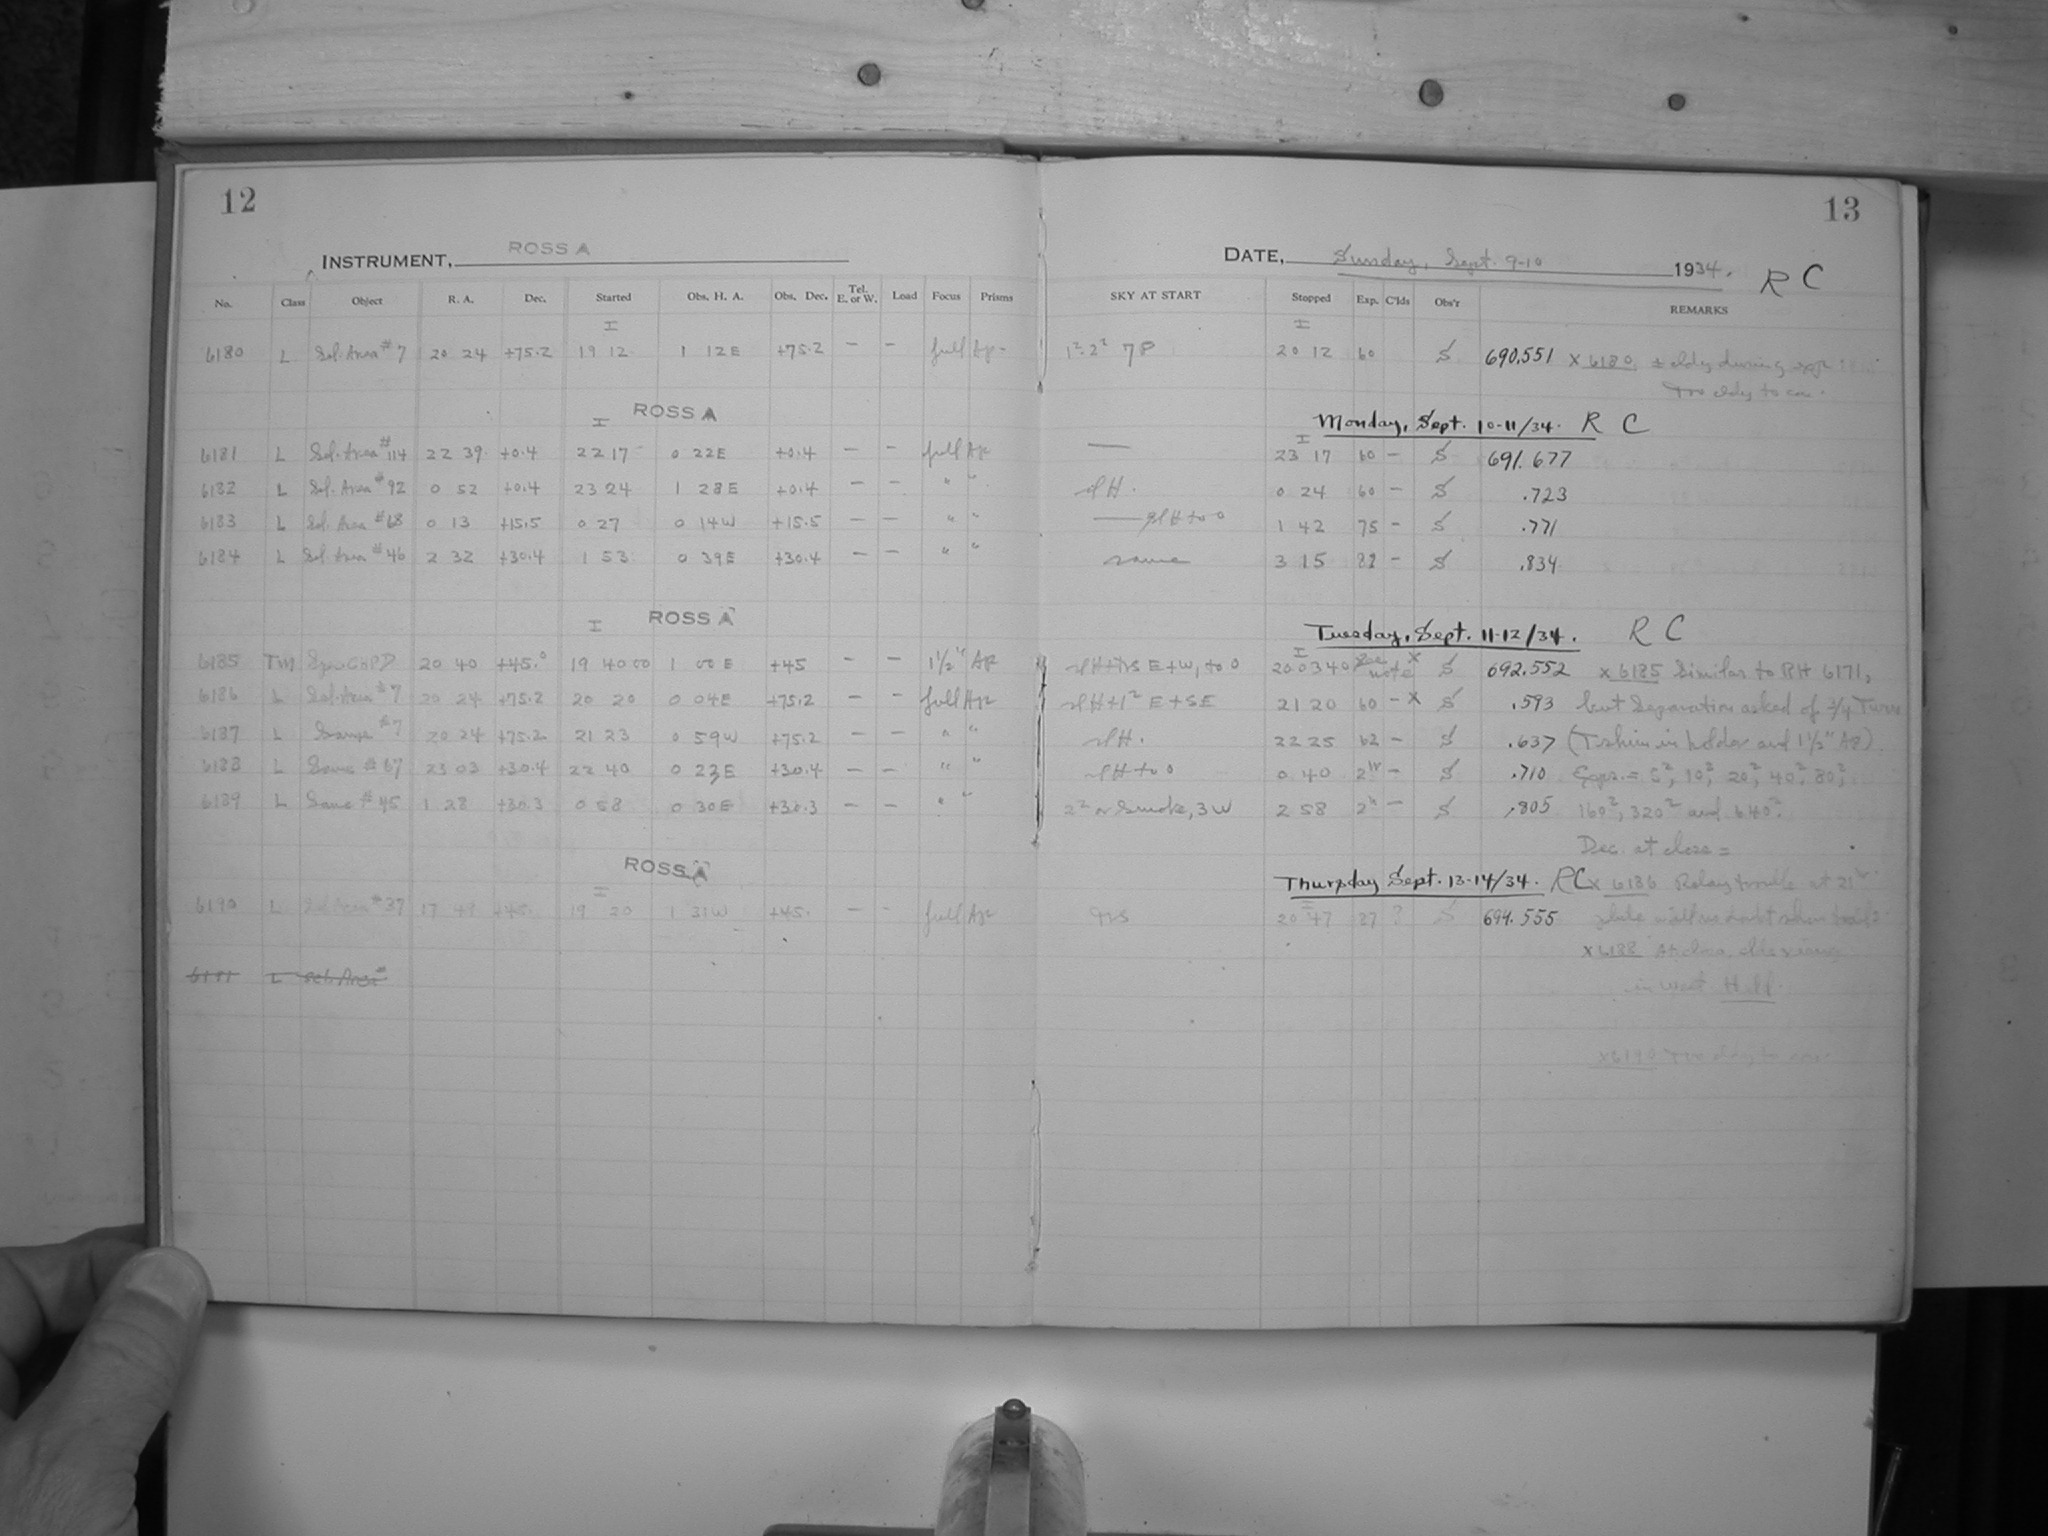 12
13
INSTRUMENT, ROSS A
DATE, Sunday, Sept. 9-10 1934. R C
No. Class Object R. A. Dec. Started Obs. H. A. Obs. Dec. Tel. E. or W. Load Focus Prisms SKY AT START Stopped Exp. C'lds Obs'r REMARKS
6180 L Sel. Area #7 20 24 +75.2 19 12 1 12E +75.2 — — full Ap 1² 2² 7P 20 12 60 S 690.551 x 6180. ± cldy during exp
Too cldy to con.
ROSS A Monday, Sept. 10-11/34. R C
6181 L Sel. Area #114 22 39 +0.4 22 17 0 22E +0.4 — — full Ap — 23 17 60 — S 691.677
6182 L Sel. Area #92 0 52 +0.4 23 24 1 28E +0.4 — — " " slH. 0 24 60 — S .723
6183 L Sel. Area #68 0 13 +15.5 0 27 0 14W +15.5 — — " " — slH to 0 1 42 75 — S .771
6184 L Sel. Area #46 2 32 +30.4 1 53 0 39E +30.4 — — " " same 3 15 82 — S .834
ROSS A Tuesday, Sept. 11-12/34. R C
6185 TM Spec CHPD 20 40 +45.° 19 40 00 1 00 E +45 — — 1½" AP slH+ E+W, to 0 20 03 40 see note x S 692.552 x 6185 Similar to RH 6171,
6186 L Sel. Area #7 20 24 +75.2 20 20 0 04E +75.2 — — full Ap slH+1² E+SE 21 20 60 — x S .593 but Separation asked of ¾ Turn
6187 L Same #7 20 24 +75.2 21 23 0 59W +75.2 — — " " slH. 22 25 62 — S .637 (T shim in holder and 1½" AP)
6188 L Same #67 23 03 +30.4 22 40 0 23E +30.4 — — " " slH to 0 0 40 2hr — S .710 Exps. = 5s, 10s, 20s, 40s, 80s,
6189 L Same #45 1 28 +30.3 0 58 0 30E +30.3 — — " " 2² or Smoke, 3W 2 58 2h — S .805 160s, 320s and 640s.
Dec. at close =
ROSS A Thursday Sept. 13-14/34. RC x 6186 Relay trouble at 21
6190 L Sel. Area #37 17 49 +45. 19 20 1 31W +45. — — full Ap 20 47 87 ? S 694.555
x 6188 At close,
6191 L Sel. Area # in West Half.
x 6190 Too cldy to con.